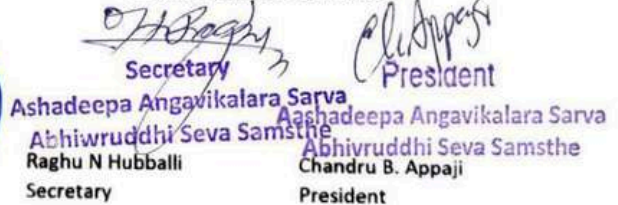 Secretary
Ashadeepa Angavikalara Sarva
Abhiwruddhi Seva Samsthe
Raghu N Hubballi
Secretary
President
Aashadeepa Angavikalara Sarva
Abhivruddhi Seva Samsthe
Chandru B. Appaji
President